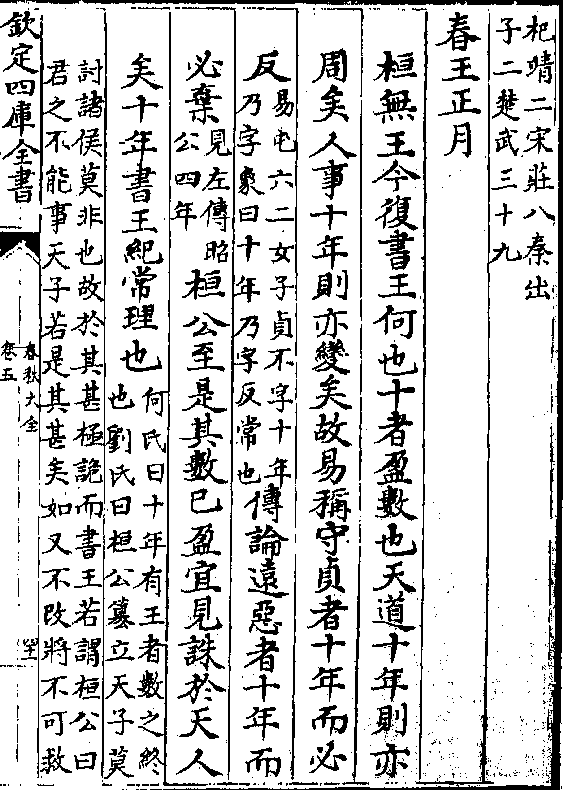 杞靖二宋莊八秦出
子二楚武三十九
春王正月
桓無王今復書王何也十者盈數也天道十年則亦
周矣人事十年則亦變矣故易稱守貞者十年而必
反
易屯六二女子貞不字十年
乃字象曰十年乃字反常也
傳論遠惡者十年而
必棄
見左傳昭
公四年
桓公至是其數已盈宜見誅於天人
矣十年書王紀常理也
何氏曰十年有王者數之終
也劉氏曰桓公簒立天子莫
討諸侯莫非也故於其甚極詭而書王若謂桓公曰
君之不能事天子若是其甚矣如又不改將不可救
欽定四庫全書
春秋大全
卷五